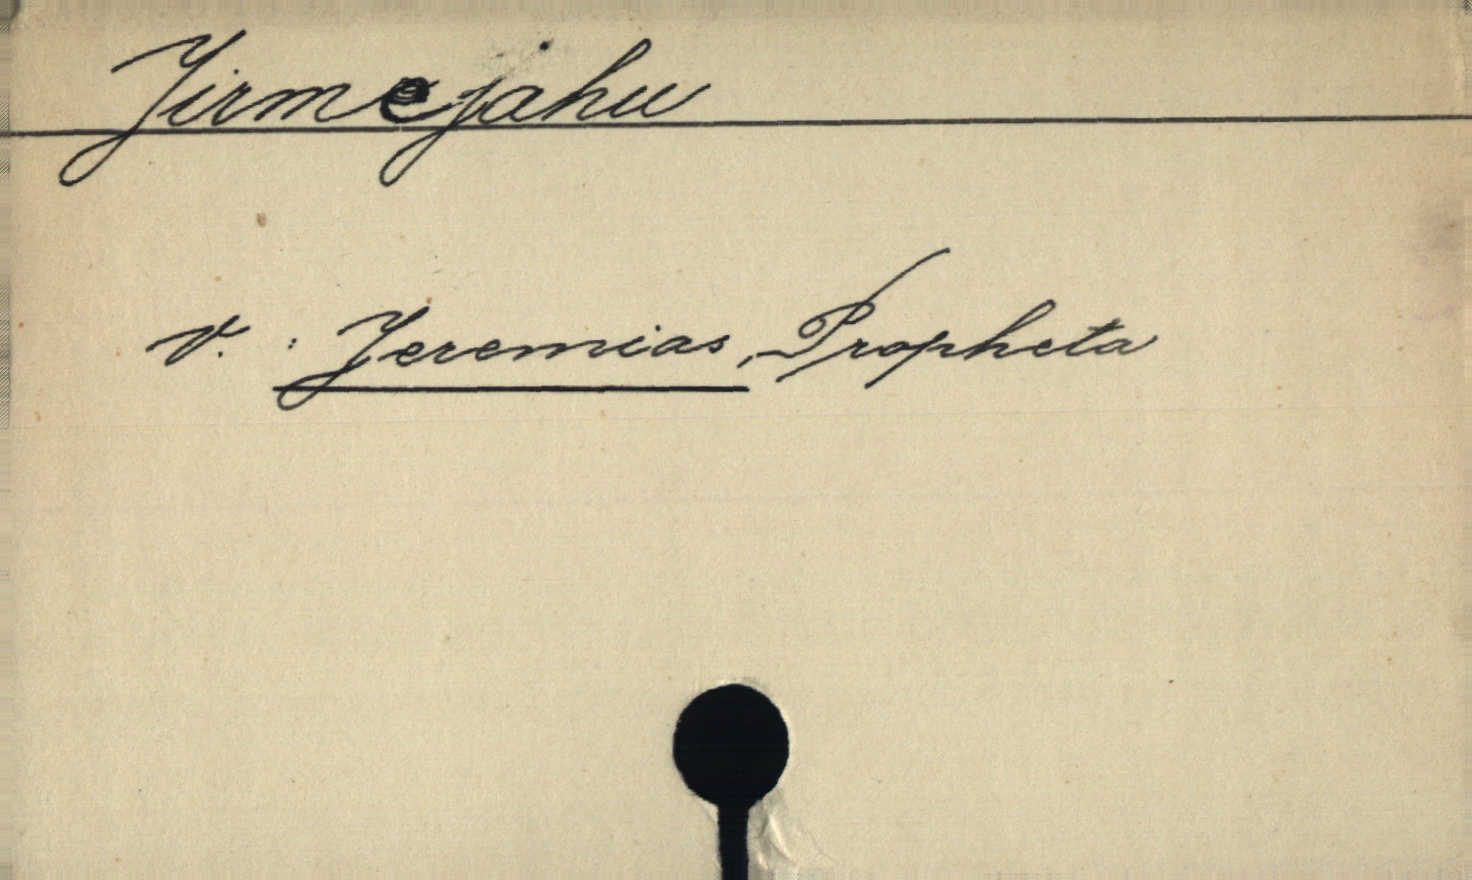 Jirmejahu
v. : Jeremias, Propheta